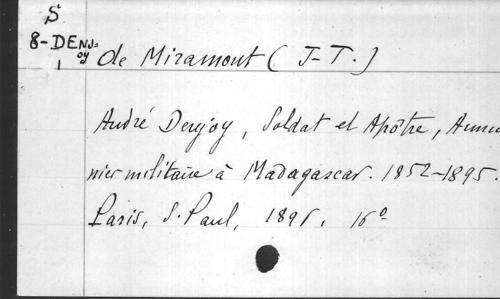 S
8-DENJ-
oy
1
de Miramont (J-T.)
André Denjoy, Soldat et Apôtre, Aumô
nier militaire à Madagascar. 1852-1895.
Paris, S. Paul, 1896, 16°